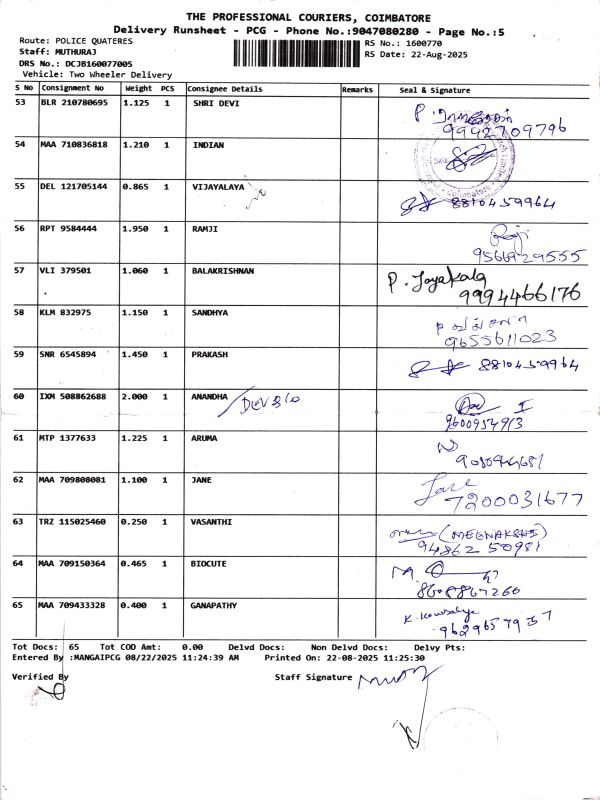 THE PROFESSIONAL COURIERS, COIMBATORE
Delivery Runsheet - PCG - Phone No.:9047080280 - Page No.:5
Route: POLICE QUATERES
Staff: MUTHURAJ
DRS No.: DCJB160077005
Vehicle: Two Wheeler Delivery
RS No.: 1600770
RS Date: 22-Aug-2025
S No Consignment No Weight PCS Consignee Details Remarks Seal & Signature
53 BLR 210780695 1.125 1 SHRI DEVI P. 9942709796
54 MAA 710836818 1.210 1 INDIAN
55 DEL 121705144 0.865 1 VIJAYALAYA 8810459964
56 RPT 9584444 1.950 1 RAMJI Raji 9566929555
57 VLI 379501 1.060 1 BALAKRISHNAN P. Jayakala 9994466176
58 KLM 832975 1.150 1 SANDHYA 9655611023
59 SNR 6545894 1.450 1 PRAKASH 8810459964
60 IXM 508862688 2.000 1 ANANDHA 9600954913
61 MTP 1377633 1.225 1 ARUMA
62 MAA 709808081 1.100 1 JANE Jane 7200031677
63 TRZ 115025460 0.250 1 VASANTHI (MEENAKSHI) 94862 50981
64 MAA 709150364 0.465 1 BIOCUTE M. 8608867260
65 MAA 709433328 0.400 1 GANAPATHY K. Kowsalya 9629657937
Tot Docs: 65 Tot COD Amt: 0.00 Delvd Docs: Non Delvd Docs: Delvy Pts:
Entered By :MANGAIPCG 08/22/2025 11:24:39 AM Printed On: 22-08-2025 11:25:30
Verified By Staff Signature